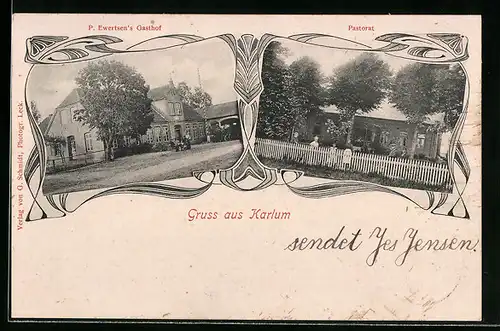 P. Ewertsen's Gasthof
Pastorat
Verlag von G. Schmidt, Photogr. Leck.
Gruss aus Karlum
sendet Jes Jensen.